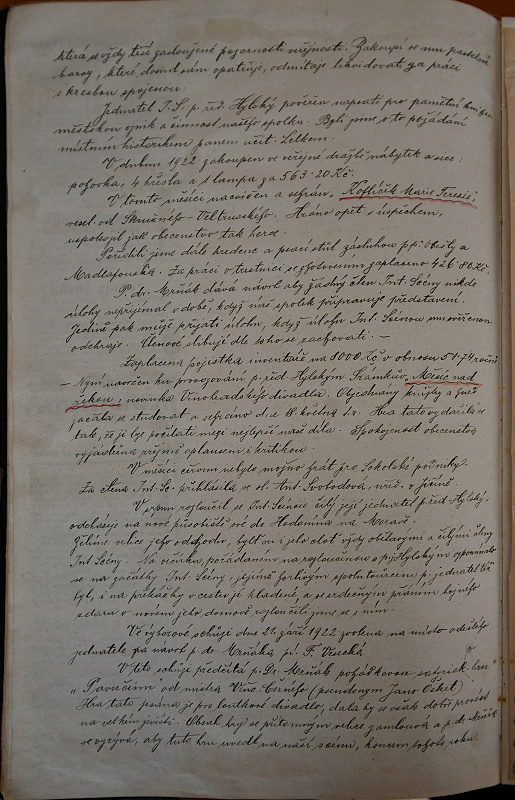 která se vždy těší zasloužené pozornosti veřejnosti. Zakoupí se mu pastelové
barvy, které dosud sám opatřuje, odmítaje likvidovati za práci
s kresbou spojenou.
Jednatel I.S. p. řed. Hylský pověřen napsati pro pamětní knihu
městskou vznik a činnost našeho spolku. Byli jsme o to požádáni
místním historikem panem učit. Lelkem.
V dubnu 1922 zakoupen ve veřejné dražbě nábytek a sice:
pohovka, 4 křesla a 1 lampa za 563·20 Kč.
V tomto měsíci nacvičen a sehrán „Koflíček Marie Terezie",
vesel. od Skružného-Veltruského. Hráno opět s úspěchem,
uspokojil jak obecenstvo tak herce.
Pořídili jsme dále kredenc a psací stůl zásluhou pp.
Madlafouska. Za práci v truhlici se zhotovením zaplaceno 426·80 Kč.
P. dr. Mrňák dává návrh aby žádný člen Int. Scény nikde
úlohy nepřijímal v době, když náš spolek připravuje představení.
Jedině pak může přijati úlohu, když úlohu Int. Scénou mu svěřenou
odehraje. Členové slibují dle toho se zachovati. —
Zaplacena pojistka inventáře na 8000 Kč v obnosu 51·74 ročně
— Nyní navržen ku provozování p. řed. Hylským Šrámkův „Měsíc nad
řekou", novinka Vinohradského divadla. Objednány knížky a hned
začala se studovat a sehráno d. 18. května t.r. Hra tato vydařila se
tak, že ji lze počítati mezi nejlepší naše díla. Spokojenost obecenstva
vyjádřena příjmě aplausem i kritikou.
V měsíci červnu nebylo možno hrát pro Sokolské podniky.
Za člena Int. Sc. přihlásila se sl. Ant. Svobodová, úřed. v Jičíně
V srpnu rozloučil se s Int. Scénou čilý její jednatel p. řed. Hylský,
odcházeje na nové působiště své do Hodonína na Moravě.
Želíme velice jeho odchodu, byltě on i jeho choť vždy obětavými a čilými členy
Int. Scény. Na večírku, pořádaném na rozloučenou s pp. Hylskými vzpomínalo
se na začátky Int. Scény, jejímž horlivým spolutvůrcem p. jednatel též
byl, i na překážky v cestu jí kladené, a se srdečným přáním hojného
zdaru v novém jeho domově rozloučili jsme se s ním.
Ve výborové schůzi dne 21. září 1922 zvolena na místo odešlého
jednatele na návrh p. dr Mrňáka pí. F. Vsecká
V této schůzi předčítá p. Dr. Mrňák pohádkovou satyrick. hru
„Pavučina" od mistra Vinc. Černého (pseudonym Jano Osket)
Hra tato psána je pro loutkové divadlo, dala by se však dobře provést
na velkém jevišti. Obsah hry se přítomným velice zamlouvá a p. dr. Mrňák
se vyzývá, aby tuto hru uvedl na naší scénu, koncem tohoto roku.